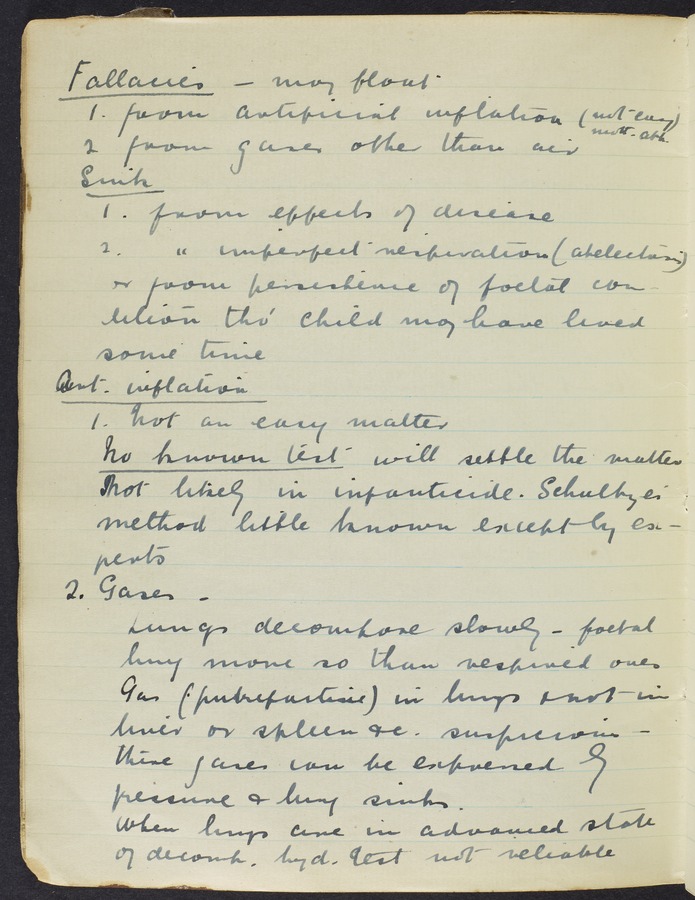 Fallacies – may float
1. from artificial inflation (not easy)
2 from gases other than air
Sink
1. from effects of disease
2. " imperfect respiration (atelectasis)
or from persistence of foetal con-
dition tho' child may have lived
some time
Art. inflation
1. Not an easy matter
No known test will settle the matter
Not likely in infanticide. Schultze's
method little known except by ex-
perts
2. Gases –
Lungs decompose slowly – foetal
lung more so than respired ones
Gas (putrefactive) in lungs & not in
liver or spleen &c. suspicion –
these gases can be expressed by
pressure & lung sinks.
When lungs are in advanced state
of decomp. hyd. test not reliable